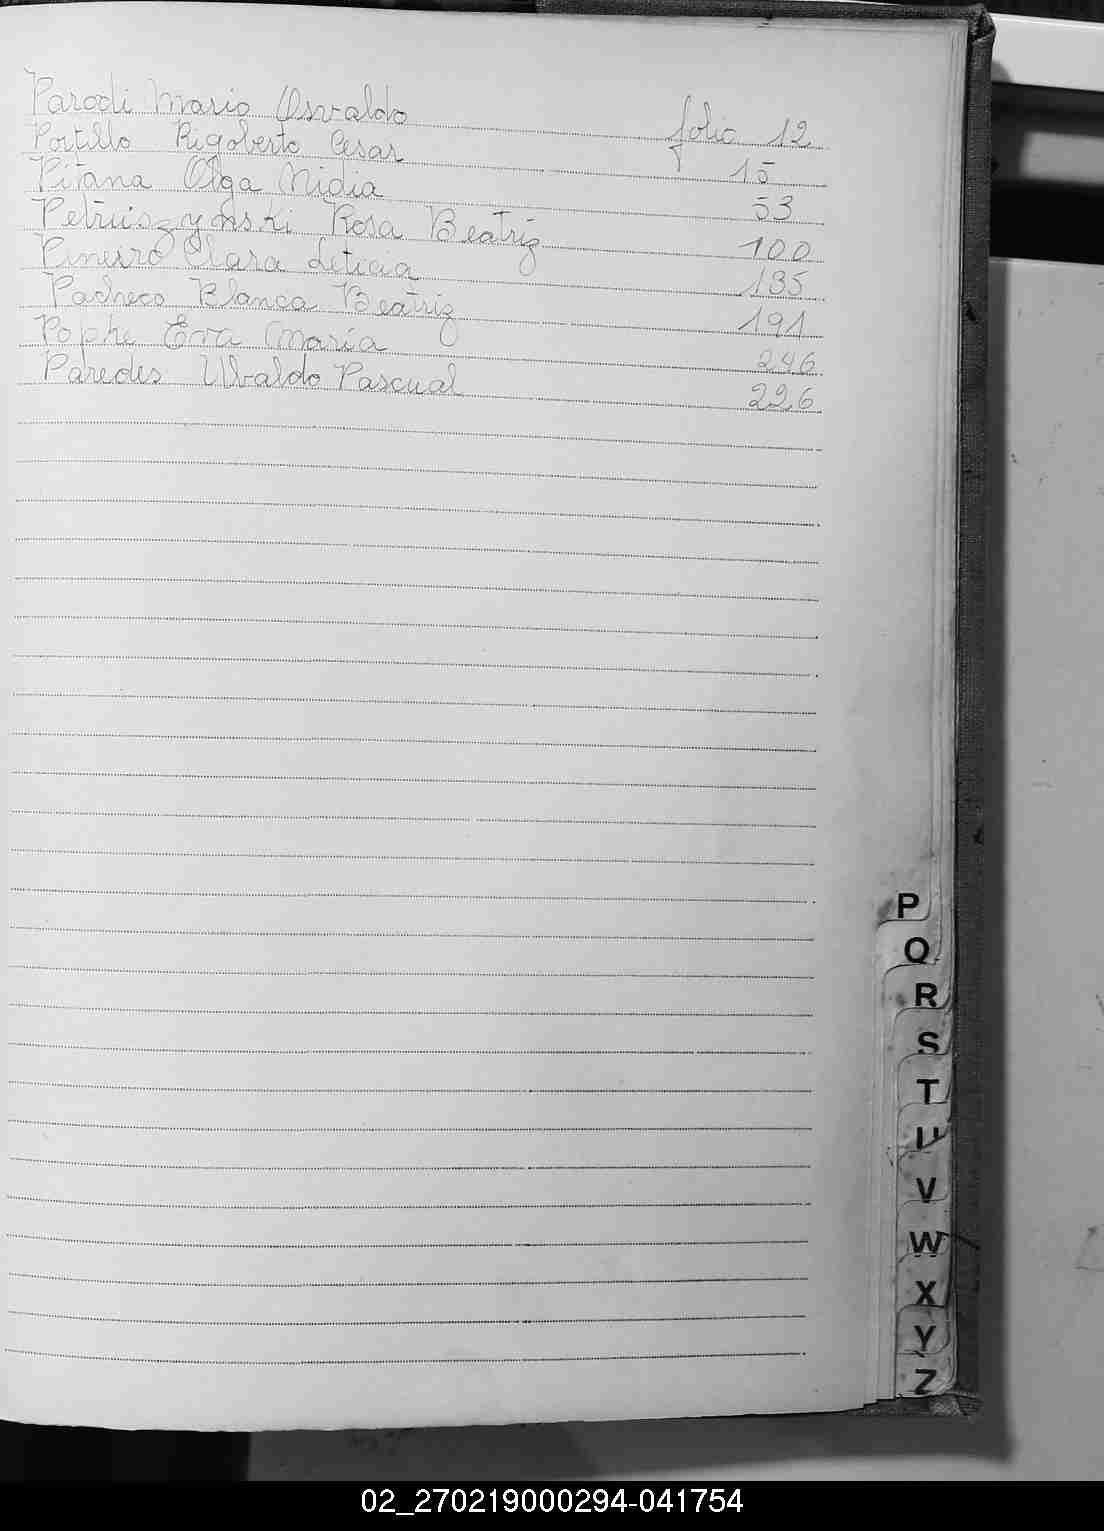 Parodi Mario Osvaldo folio 12
Portillo Rigoberto Cesar 15
Pitana Olga Nidia 53
Petruiszynski Rosa Beatriz 100
Pineiro Clara Leticia 135
Pacheco Blanca Beatriz 191
Pophe Eva María 246
Paredes Ubaldo Pascual 226
P
Q
R
S
T
U
V
W
X
Y
Z
02_270219000294-041754